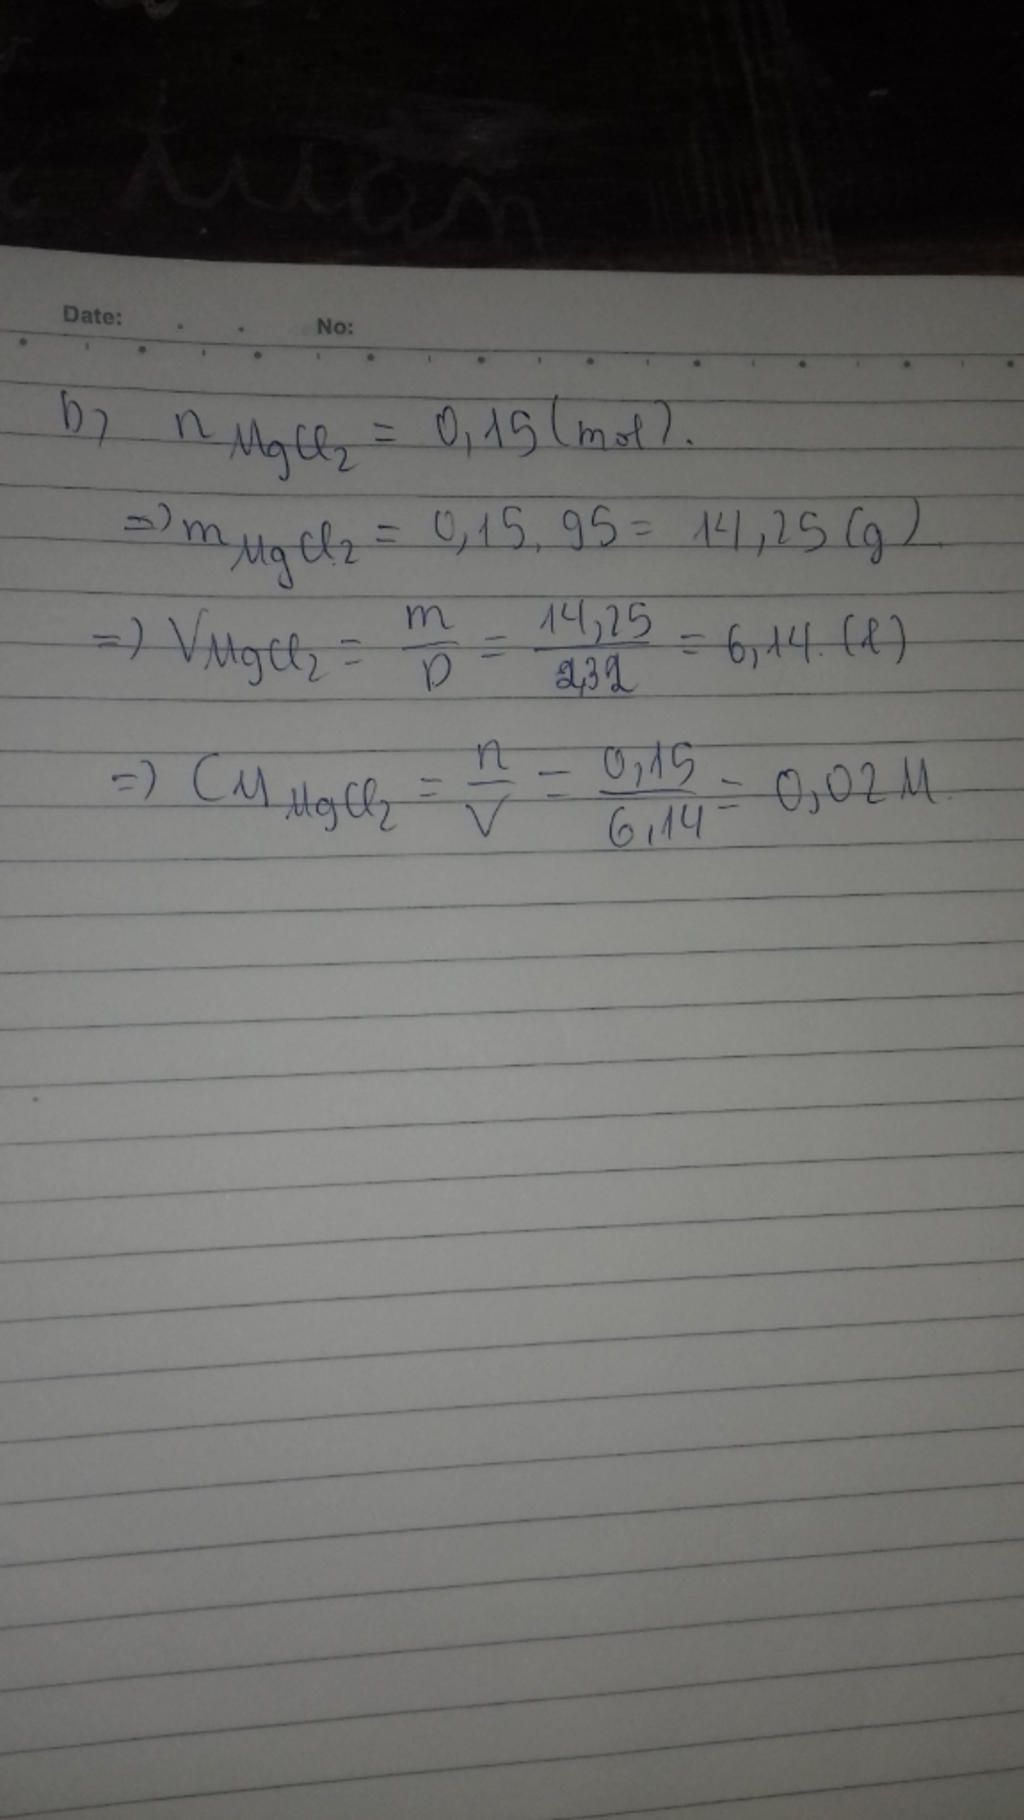 Date: No:
b) n MgCl2 = 0,15 (mol).
=> m MgCl2 = 0,15. 95 = 14,25 (g)
=> V MgCl2 = m/D = 14,25/2,32 = 6,14. (l)
=> CM MgCl2 = n/V = 0,15/6,14 = 0,02 M.